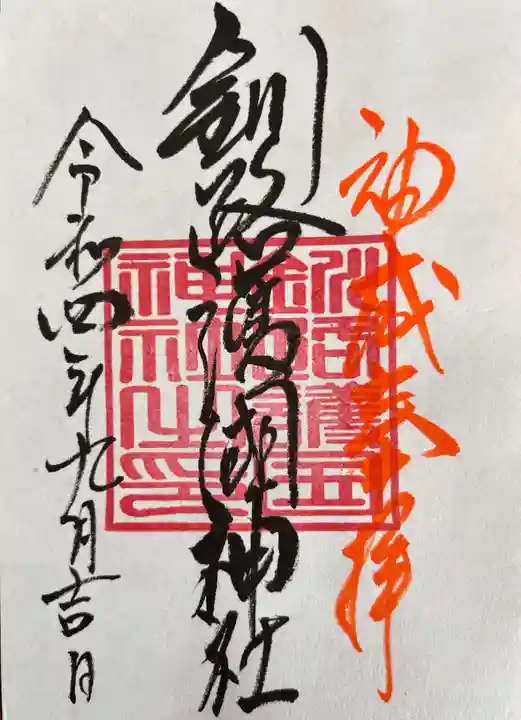 神威奉拝
釧路護國神社
令和四年九月吉日
釧路護国
神社之印